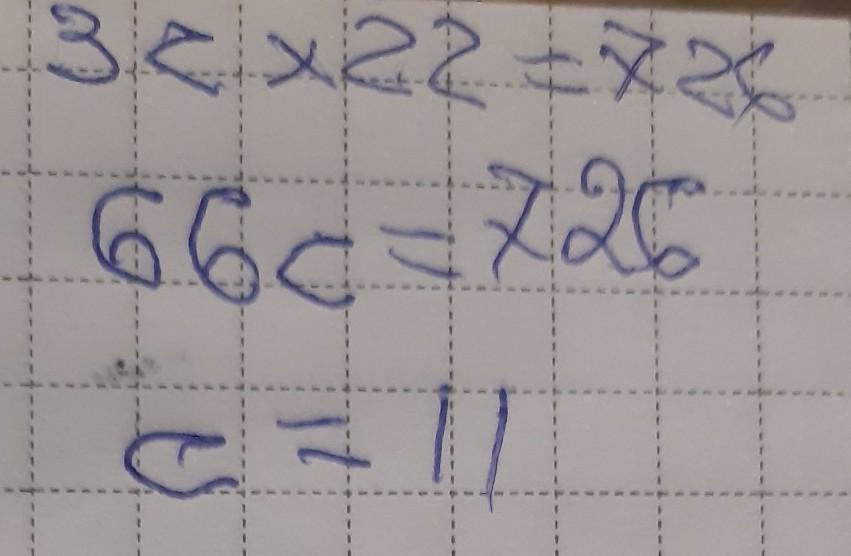 3c×22=726
66c=726
c=11